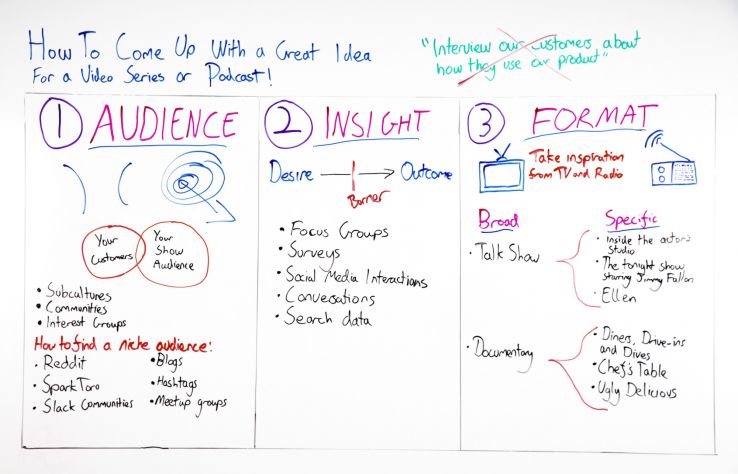 How To Come Up With a Great Idea
For a Video Series or Podcast!
"Interview our customers about
how they use our product"
1 AUDIENCE
Your
Customers
Your
Show
Audience
• Subcultures
• Communities
• Interest Groups
How to find a niche audience:
• Reddit
• SparkToro
• Slack Communities
• Blogs
• Hashtags
• Meetup groups
2 INSIGHT
Desire
Outcome
Barrier
• Focus Groups
• Surveys
• Social Media Interactions
• Conversations
• Search data
3 FORMAT
Take inspiration
from TV and Radio
Broad
Specific
• Talk Show
• Inside the actor's
Studio
• The tonight show
starring Jimmy Fallon
• Ellen
• Documentary
• Diners, Drive-ins
and Dives
• Chef's Table
• Ugly Delicious